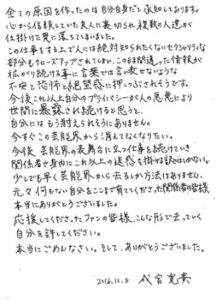 全ての原因を作ったのは自分自身だと承知しております。
心から信頼していた友人に裏切られ複数の人達が
仕掛けた罠に落ちてしまいました。
この仕事をする上で人には絶対知られたくないセクシャリティな
部分もクローズアップされてしまい、このまま間違った情報が
拡がり続ける事に言葉では言い表せないような
不安と恐怖と絶望感に押しつぶされそうです。
今後これ以上自分のプライバシーが人の悪意により
世間に暴露され続けると思うと、
自分にはもう耐えられそうにありません。
今すぐこの芸能界から消えてなくなりたい。
今後芸能界の表舞台に立つ仕事を続けていき
関係者や身内にこれ以上の迷惑を掛ける訳にはいかない。
少しでも早く芸能界から去るしか方法はありません。
元々何もない自分をここまで育ててくださった関係者の皆様
本当にありがとうございました。
応援してくださったファンの皆様、こんな形で去っていく
自分を許してください。
本当にごめんなさい。そして、ありがとうございました。
2016.12.9 成宮寛貴